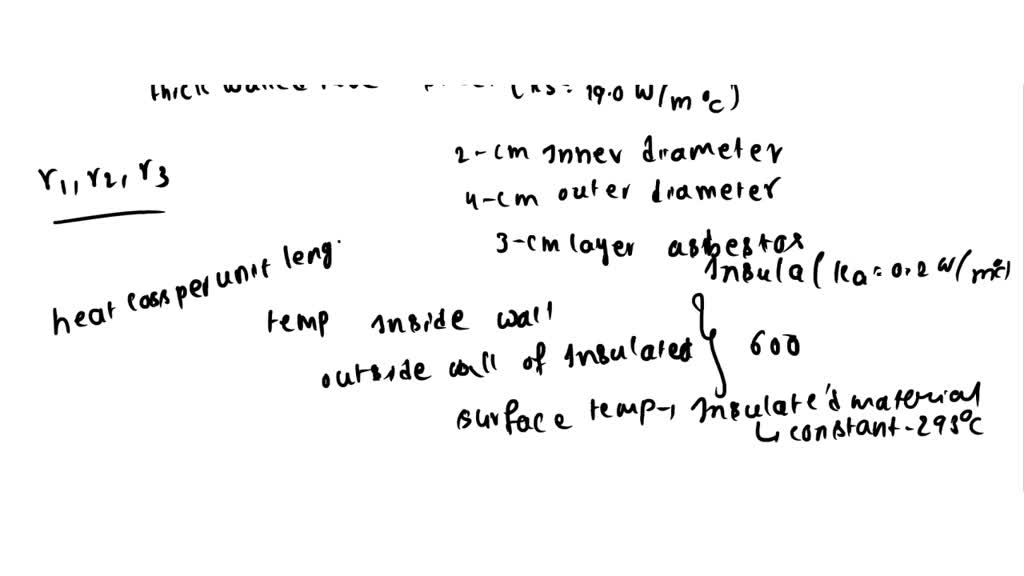 thick walled (ks = 19.0 W/m°c)
2-cm Inner diameter
r1, r2, r3
4-cm outer diameter
3-cm layer asbestox
Insula (ka = 0.2 W/m°c)
heat loss per unit leng.
temp inside wall
outside wall of Insulated } 600
surface temp → Insulate's material
↳ constant - 293°C